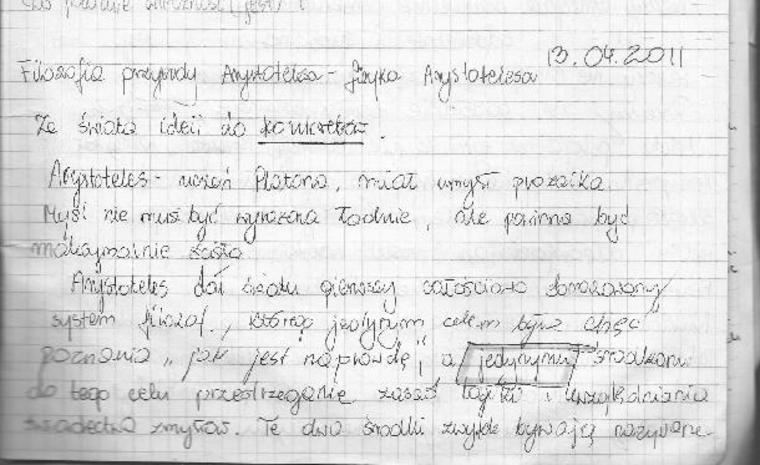 13.04.2011
Filozofia przyrody Arystotelesa - fizyka Arystotelesa
Ze świata idei do konkretów.
Arystoteles - uczeń Platona, miał umysł prozaika
Myśl nie musi być wyrażona ładnie, ale powinna być
maksymalnie ścisła
Arystoteles dał światu pierwszy całościowo
system filozof., którego jedynym celem była chęć
poznania "jak jest naprawdę", a jedynymi środkami
do tego celu przestrzeganie zasad logiki i uwzględniania
świadectwa zmysłów. Te dwa środki zwykle bywają nazywane